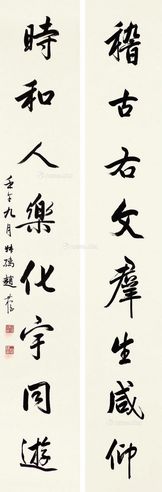 稽古右文羣生咸仰
時和人樂化宇同遊
壬午九月 趙